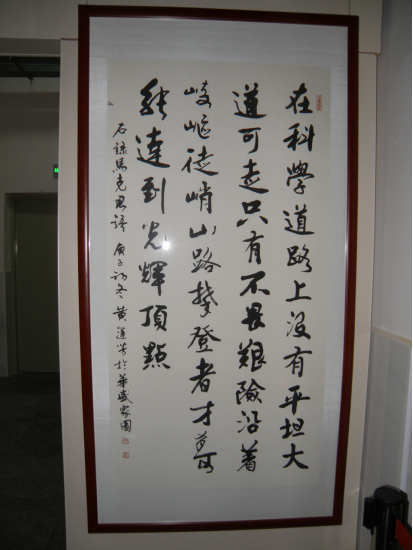 在科學道路上沒有平坦大
道可走只有不畏艱險沿着
崎嶇陡峭山路攀登者才有可
能達到光輝頂點
右錄馬克思語 庚子初冬 黃運芳於華盛家園